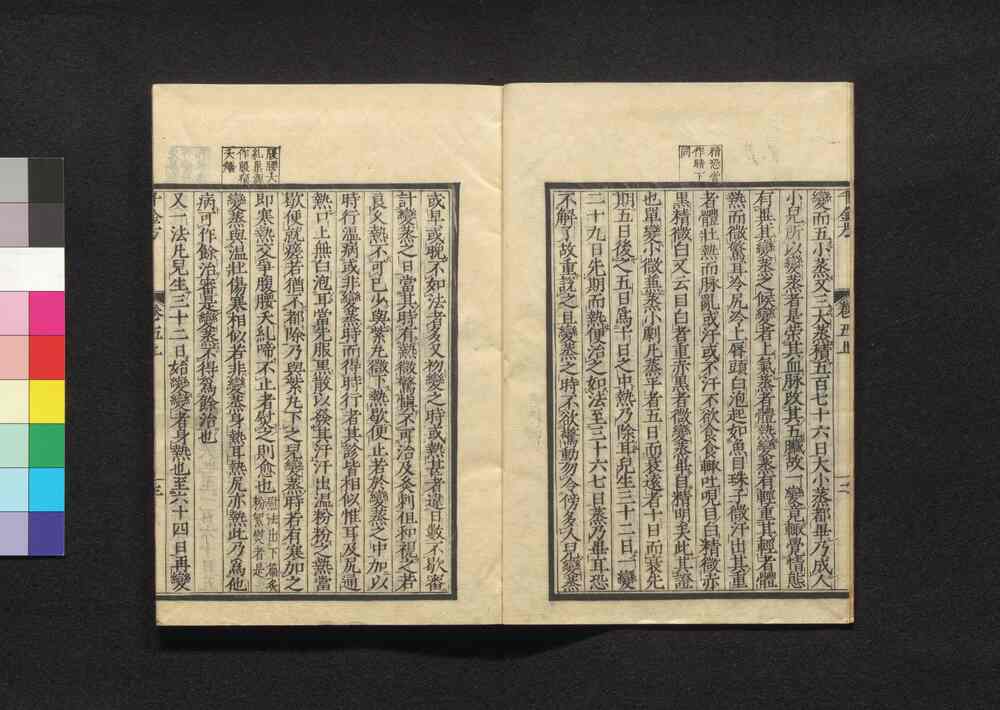 精恐當
作睛下
同
變而五小蒸又三大蒸積五百七十六日大小蒸都畢乃成人
小兒所以變蒸者是榮其血脉改其五臟故一變竟輒覺情態
有異其變蒸之候變者上氣蒸者體熱變蒸有輕重其輕者體
熱而微驚耳冷尻冷上脣頭白泡起如魚目珠子微汗出其重
者體壯熱而脉亂或汗或不汗不欲食食輒吐哯目白精微赤
黑精微白又云目白者重赤黑者微變蒸畢自精明矣此其證
也單變小微兼蒸小劇凡蒸平者五日而衰遠者十日而衰先
期五日後之五日爲十日之中熱乃除耳兒生三十二日一變
二十九日先期而熱便治之如法至三十六七日蒸乃畢耳恐
不解了故重說之且變蒸之時不欲驚動勿令傍多人兒變蒸
卷五上
腹腰夭
糺
作
夭
或早或晚不如法者多又初變之時或熱甚者違日數不歇審
計變蒸之日當其時有熱微驚愼不可治及灸刺但和視之若
良久熱不可已少與紫丸微下熱歇便止若於變蒸之中加以
時行溫病或非變蒸時而得時行者其診皆相似惟耳及尻通
熱口上無白泡耳當先服黑散以發其汗汗出溫粉粉之熱當
歇便就瘥若猶不都除乃與紫丸下之兒變蒸時若有寒加之
即寒熱交爭腹腰夭糺啼不止者熨之則愈也
變蒸與溫壯傷寒相似若非變蒸身熱耳熱尻亦熱此乃爲他
病可作餘治審是變蒸不得爲餘治也
又一法凡兒生三十二日始變變者身熱也至六十四日再變
卷五上